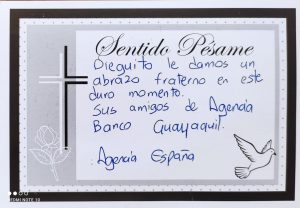 Sentido Pésame
Dieguito le damos un
abrazo fraterno en este
duro momento.
Sus amigos de Agencia
Banco Guayaquil.
Agencia España
REDMI NOTE 10